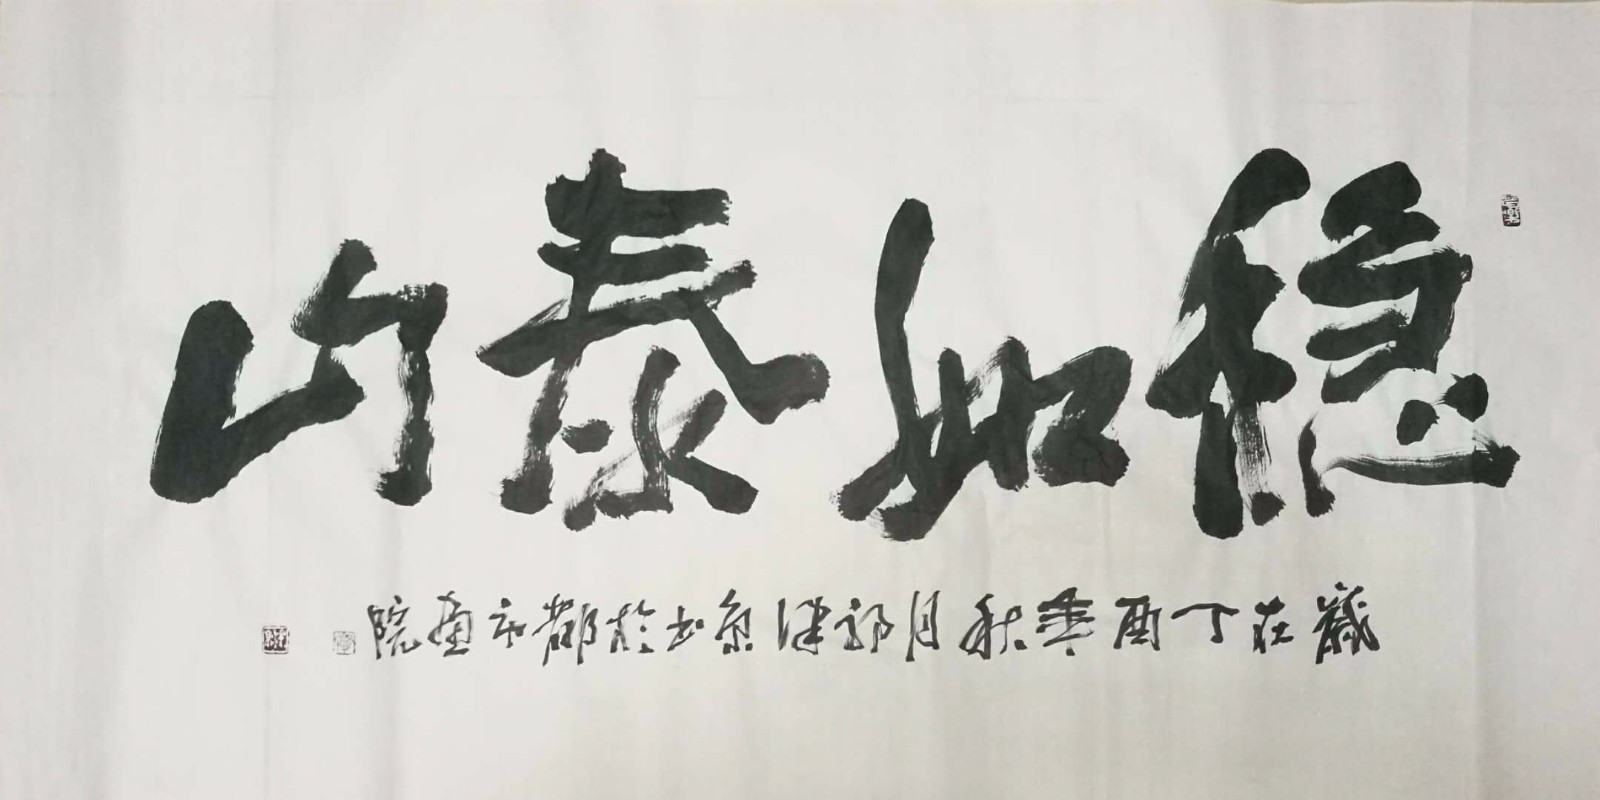 稳如泰山
岁在丁酉季秋月郭津京书于都市画院